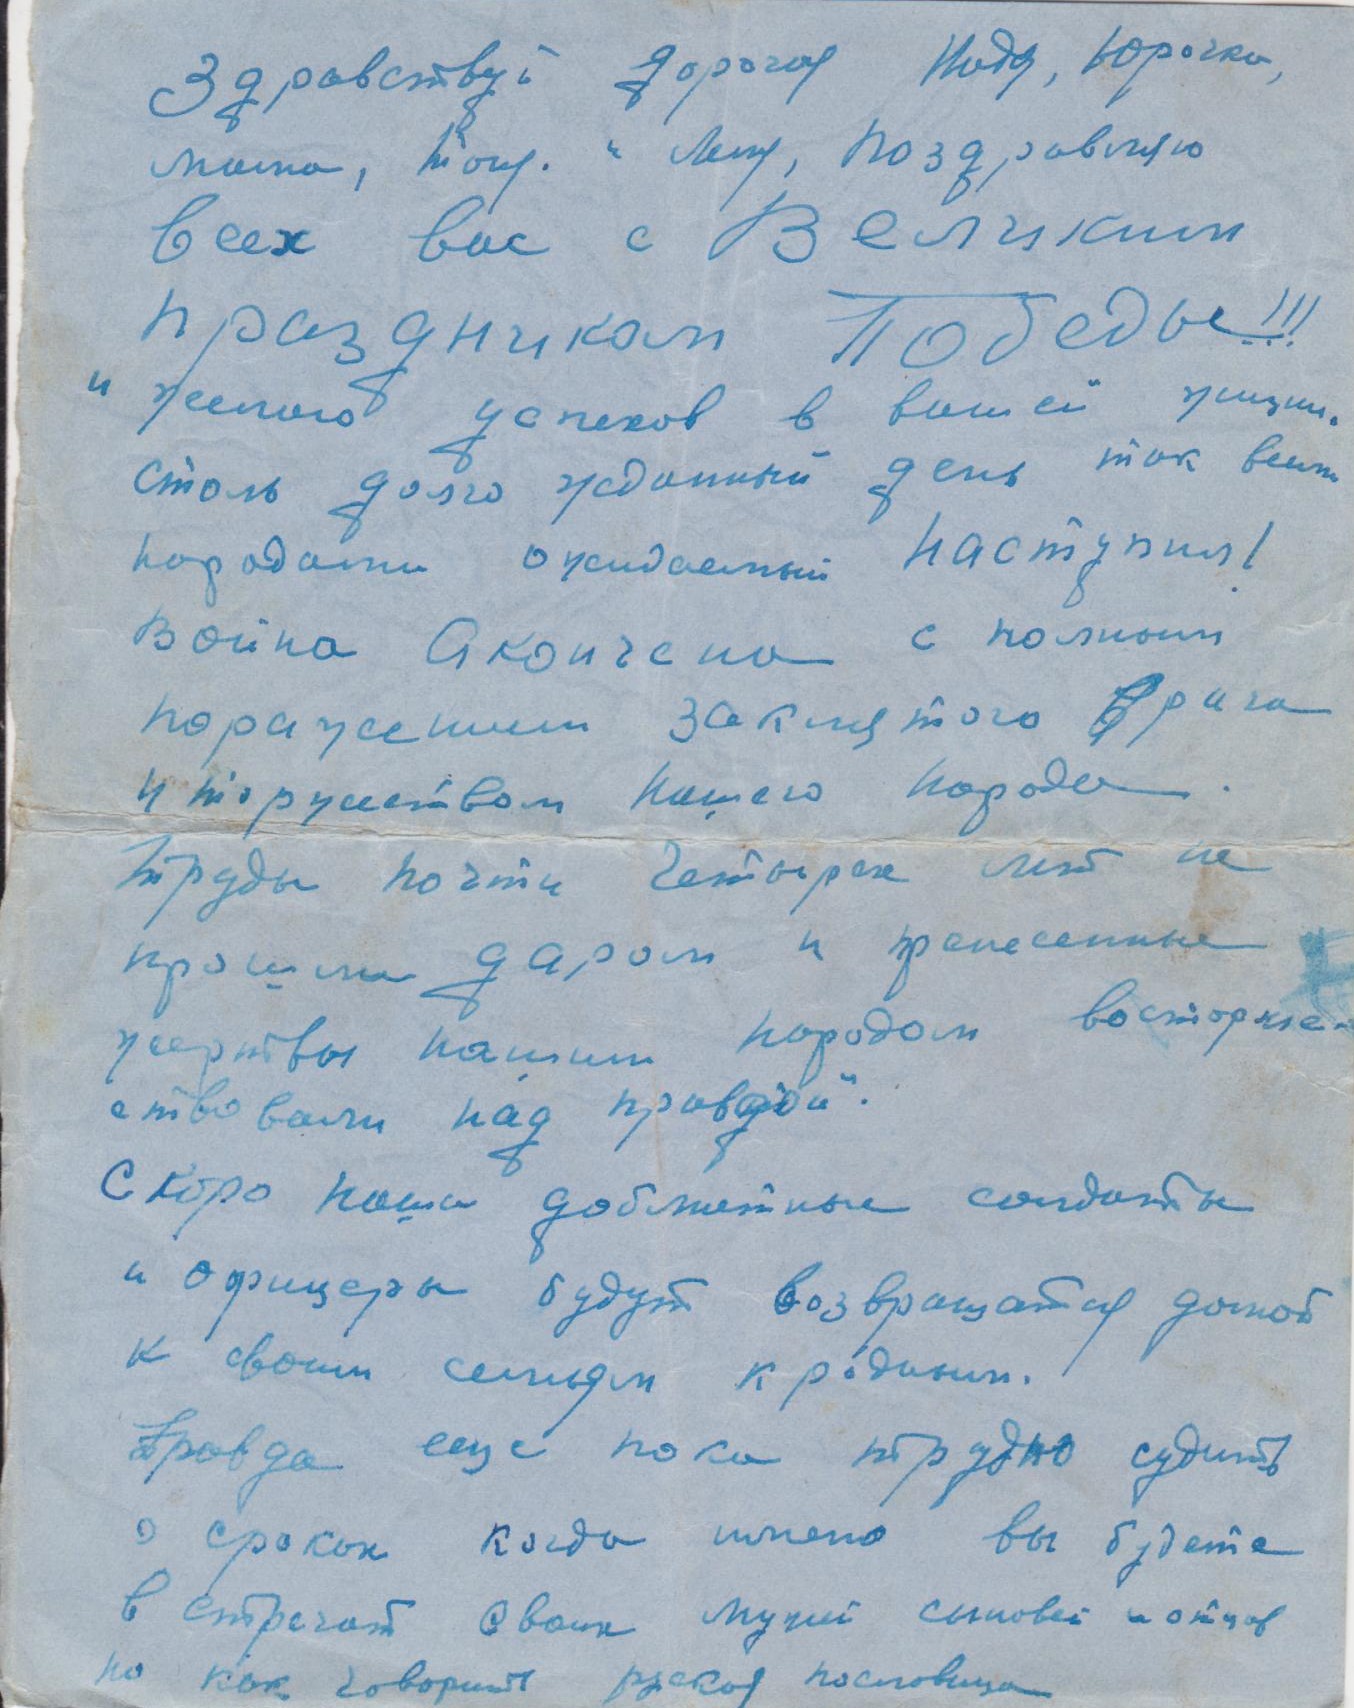 Здравствуй дорогая Надя, Юрочка,
мама, Тоня. и Леня, Поздравляю
всех вас с Великим
праздником Победы!!!
и желаю успехов в вашей жизни.
столь долго жданный день так всеми
народами ожидаемый Наступил!
Война Окончена с полным
поражением заклятого врага
и торжеством нашего народа.
Труды почти четырех лет не
прошли даром и принесенные
жертвы нашим народом восторже-
ствовали над правдой".
Скоро наши доблестные солдаты
и офицеры будут возвращатся домой
к своим семьям к родным.
Правда еще пока трудно судить
о сроках когда имено вы будете
встречат своих мужей сыновей и отцов
но как говорит руская пословица